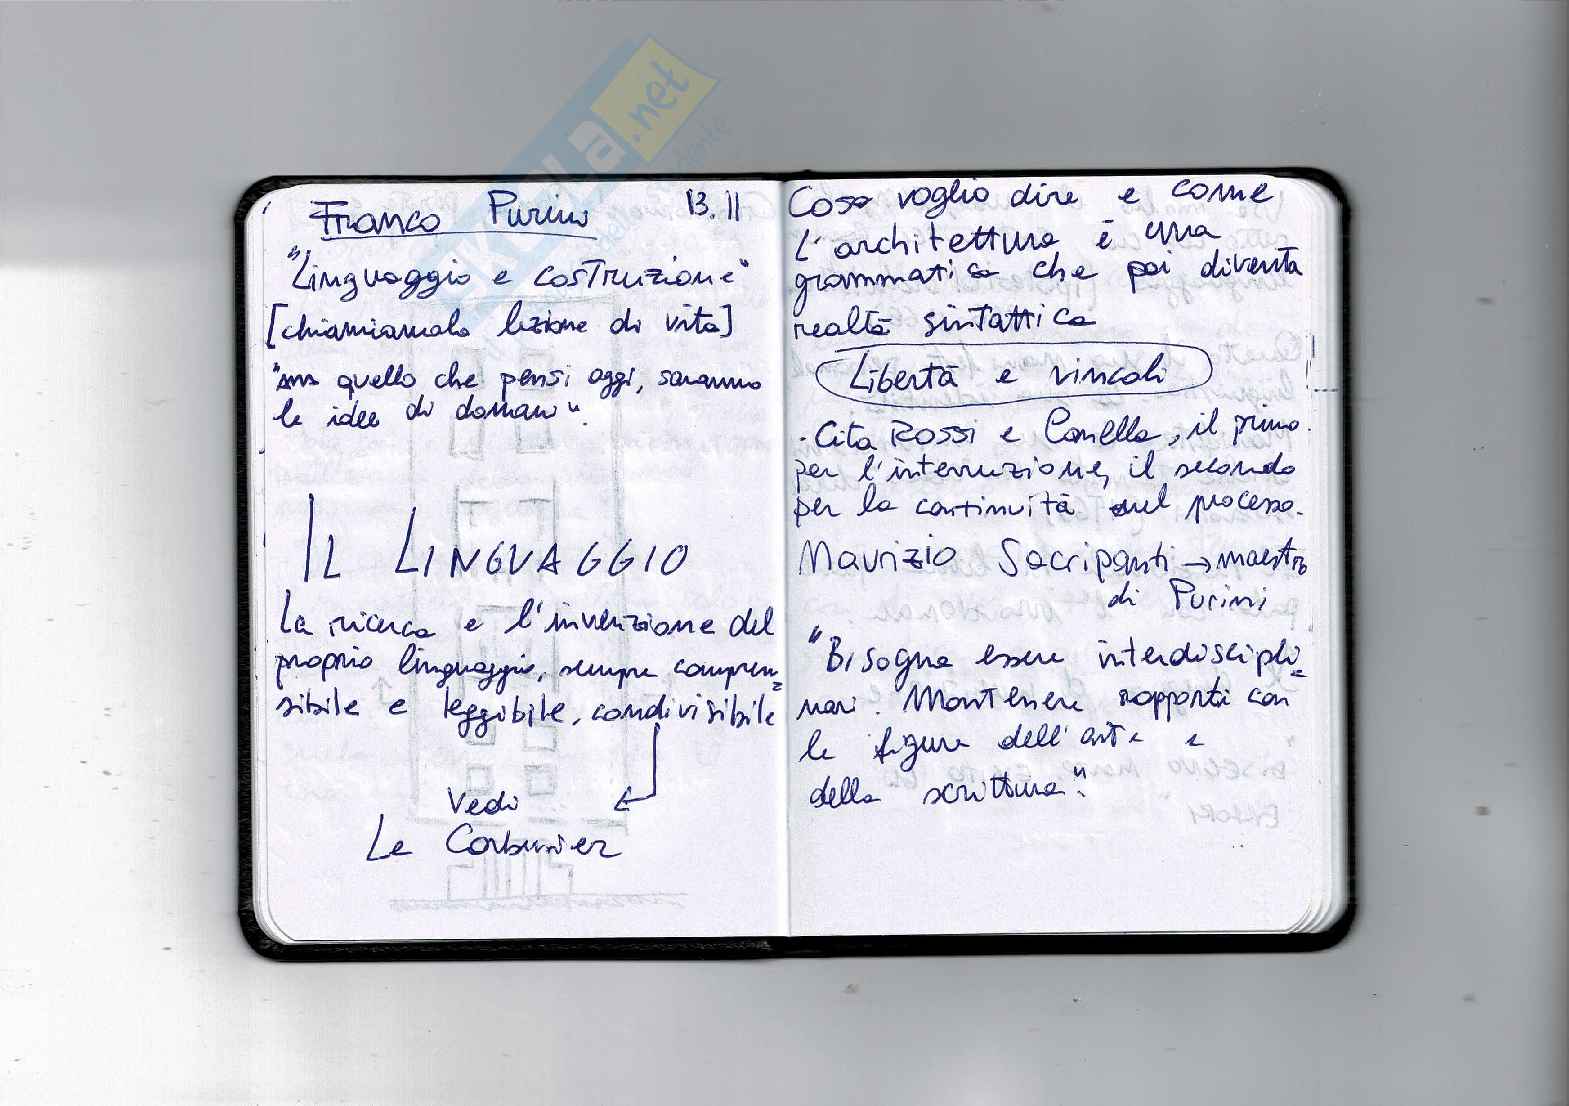 Franco Purini 13.11
"Linguaggio e costruzione"
[chiamiamola lezione di vita]
" quello che pensi oggi, saranno
le idee di domani".
IL LINGUAGGIO
La ricerca e l'invenzione del
proprio linguaggio, sempre compren=
sibile e leggibile, condivisibile
Vedi
Le Corbusier
Cosa voglio dire e come
L'architettura è una
grammatica che poi diventa
realtà sintattica
Libertà e vincoli
. Cita Rossi e Canella, il primo
per l'interruzione, il secondo
per la continuità nel processo.
Maurizio Sacripanti → maestro
di Purini
"Bisogna essere interdiscipli=
nari. Mantenere rapporti con
le figure dell'arte e
della scrittura".
SKUOLA.net